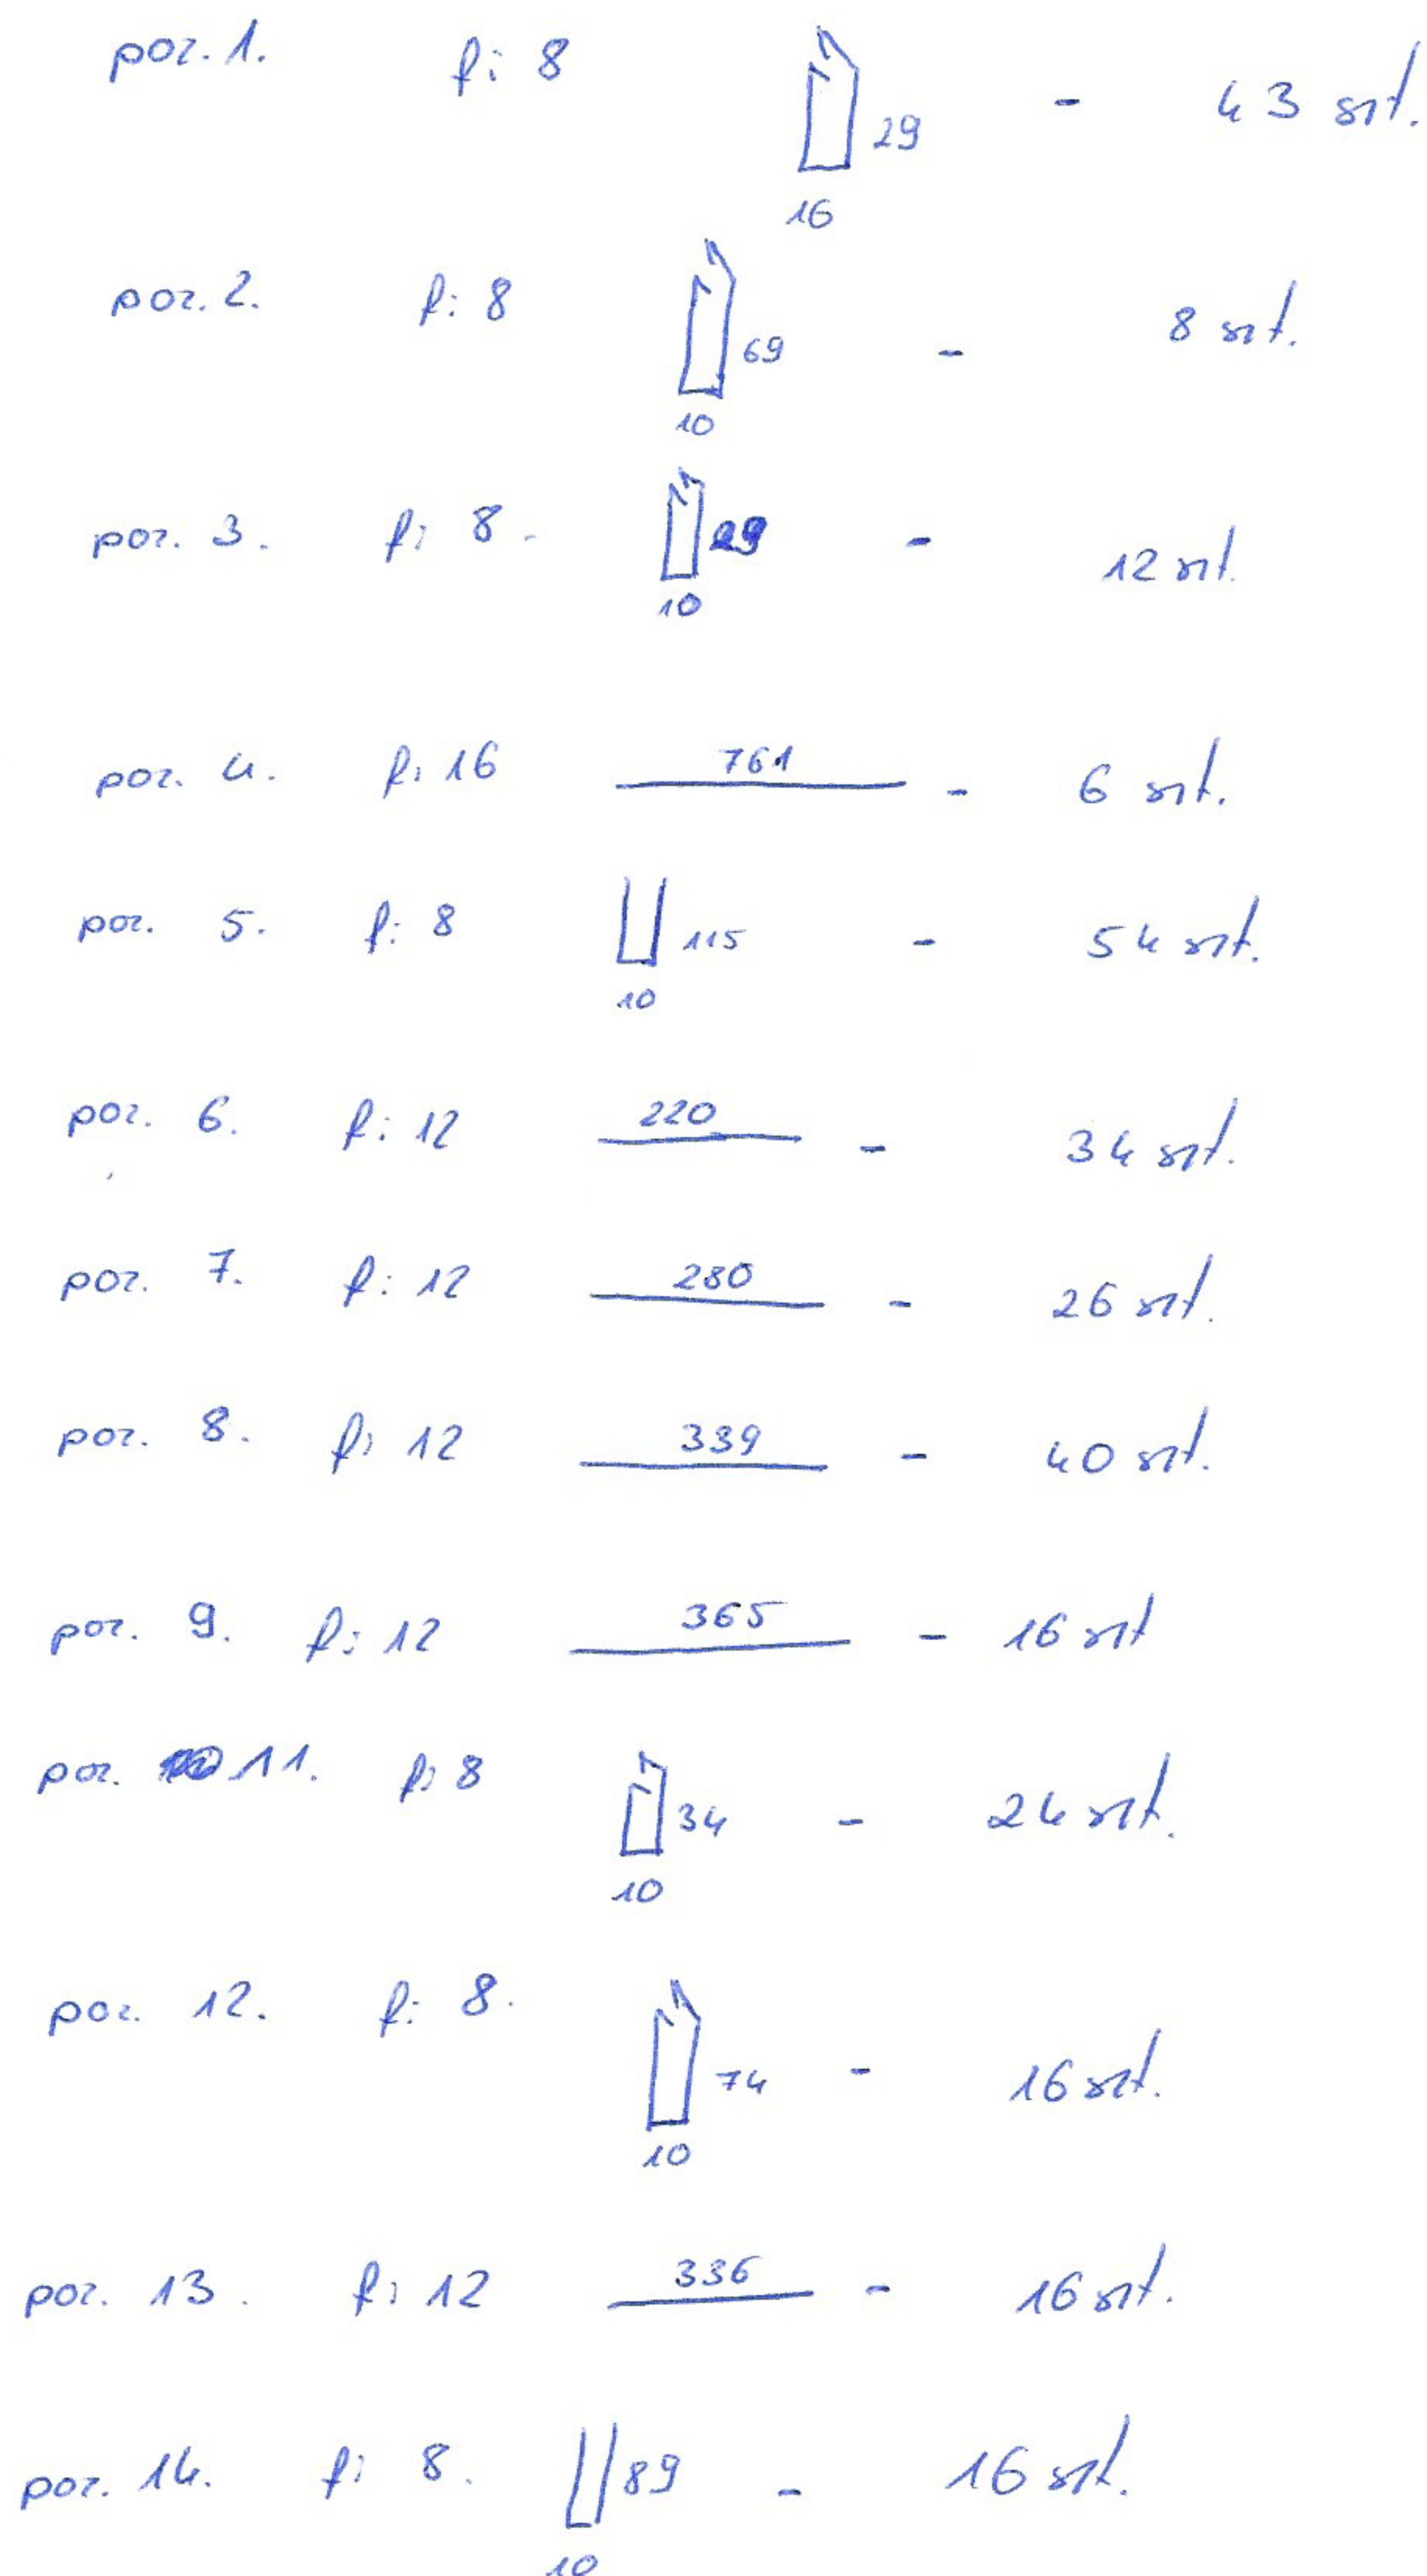 poz. 1. fi 8 29 - 43 szt.
16
poz. 2. fi 8 69 - 8 szt.
10
poz. 3. fi 8. 29 - 12 szt.
10
poz. 4. fi 16 761 - 6 szt.
poz. 5. fi 8 115 - 54 szt.
10
poz. 6. fi 12 220 - 34 szt.
poz. 7. fi 12 280 - 26 szt.
poz. 8. fi 12 339 - 40 szt.
poz. 9. fi 12 365 - 16 szt
poz. 11. fi 8 34 - 24 szt.
10
poz. 12. fi 8. 74 - 16 szt.
10
poz. 13. fi 12 336 - 16 szt.
poz. 14. fi 8. 89 - 16 szt.
10